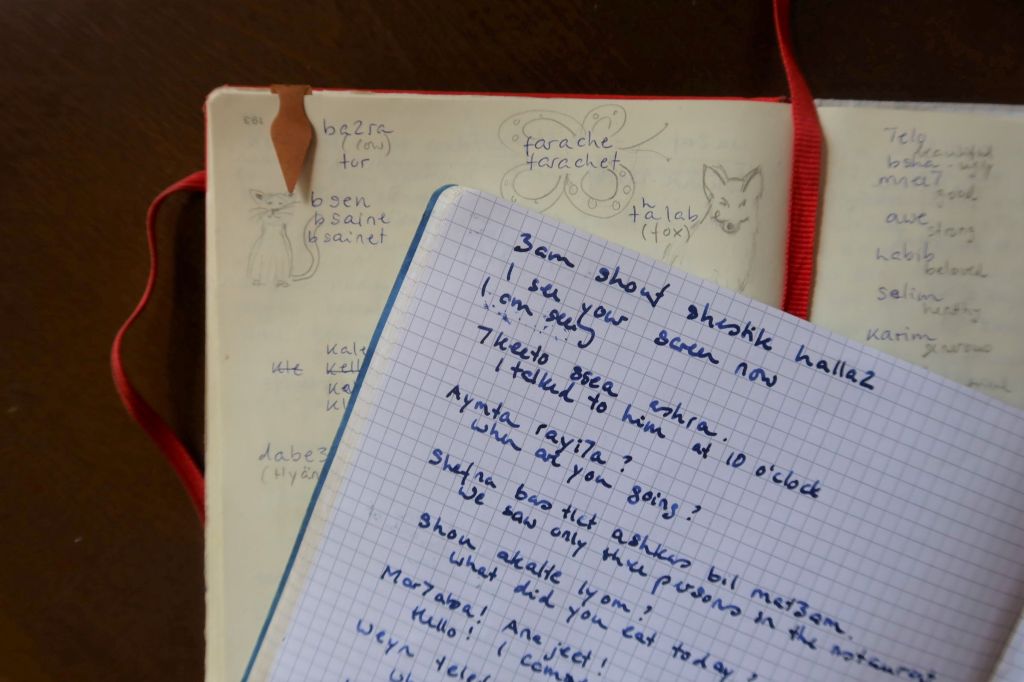 193
ba2ra
(cow)
tor
bsen
bsaine
bsainet
farache
farachet
h
talab
(fox)
kale
dabe3
7elo
beautiful
bsha
mnee7
good
awe
strong
habib
beloved
selim
healthy
karim
generous
3am shouf sheshtik halla2
I see your screen now
I am seeing
7keeto ssea ashra.
I talked to him at 10 o'clock
Aymta rayi7a?
when are you going?
Shefna bas tlet ashkhas bil mat3am.
we saw only three persons in the restaurant
Shou akalte lyom?
what did you eat today?
Mar7aba! Ana jeet!
Hello! I
weyn